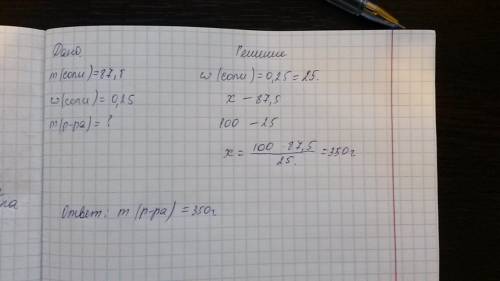 Дано
m(соли)=87,5
w(соли) = 0,25
m(р-ра) = ?
Решение
w(соли) = 0,25 = 25.
x – 87,5
100 – 25
x = 100 · 87,5 / 25. = 350г
Ответ: m(р-ра) = 350г